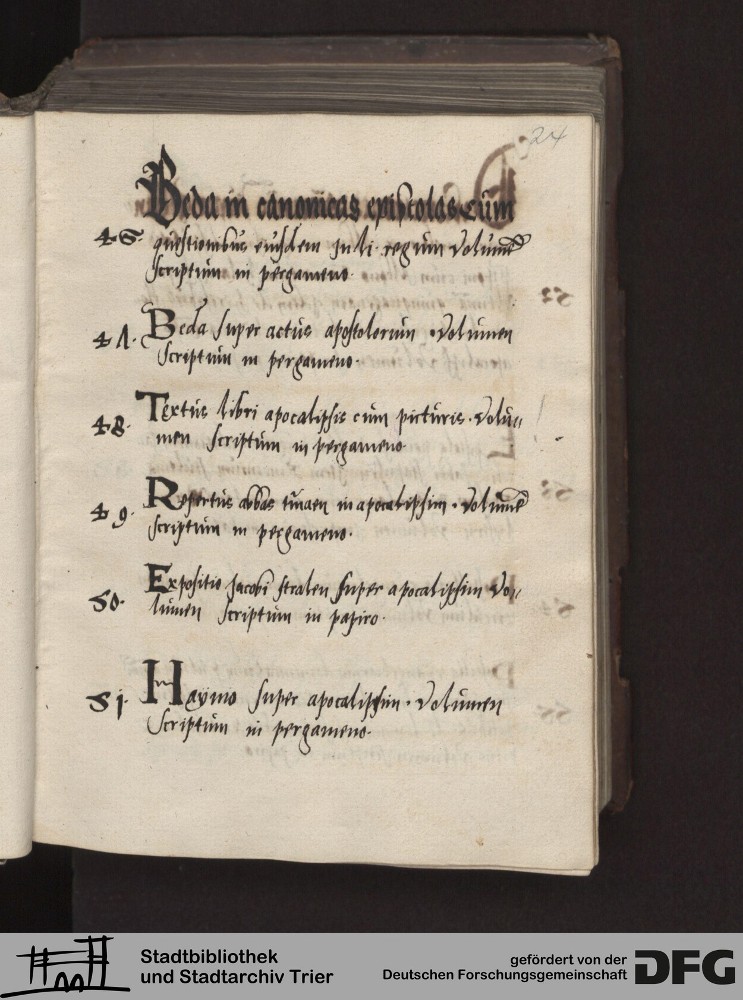 24
Beda in canonicas epistolas cum
46. questionibus eiusdem in li. regum volumē
scriptum in pergameno.
47. Beda super actus apostolorum . volumen
scriptum in pergameno.
48. Textus libri apocalipsis cum picturis . volu=
men scriptum in pergameno
49. abbas in apocalipsim . volumē
scriptum in pergameno.
50. Expositio Jacobi stralen super apocalipsim vo=
lumen scriptum in papiro.
51. Haymo super apocalipsim . volumen
scriptum in pergameno.
Stadtbibliothek
und Stadtarchiv Trier
gefördert von der
Deutschen Forschungsgemeinschaft
DFG